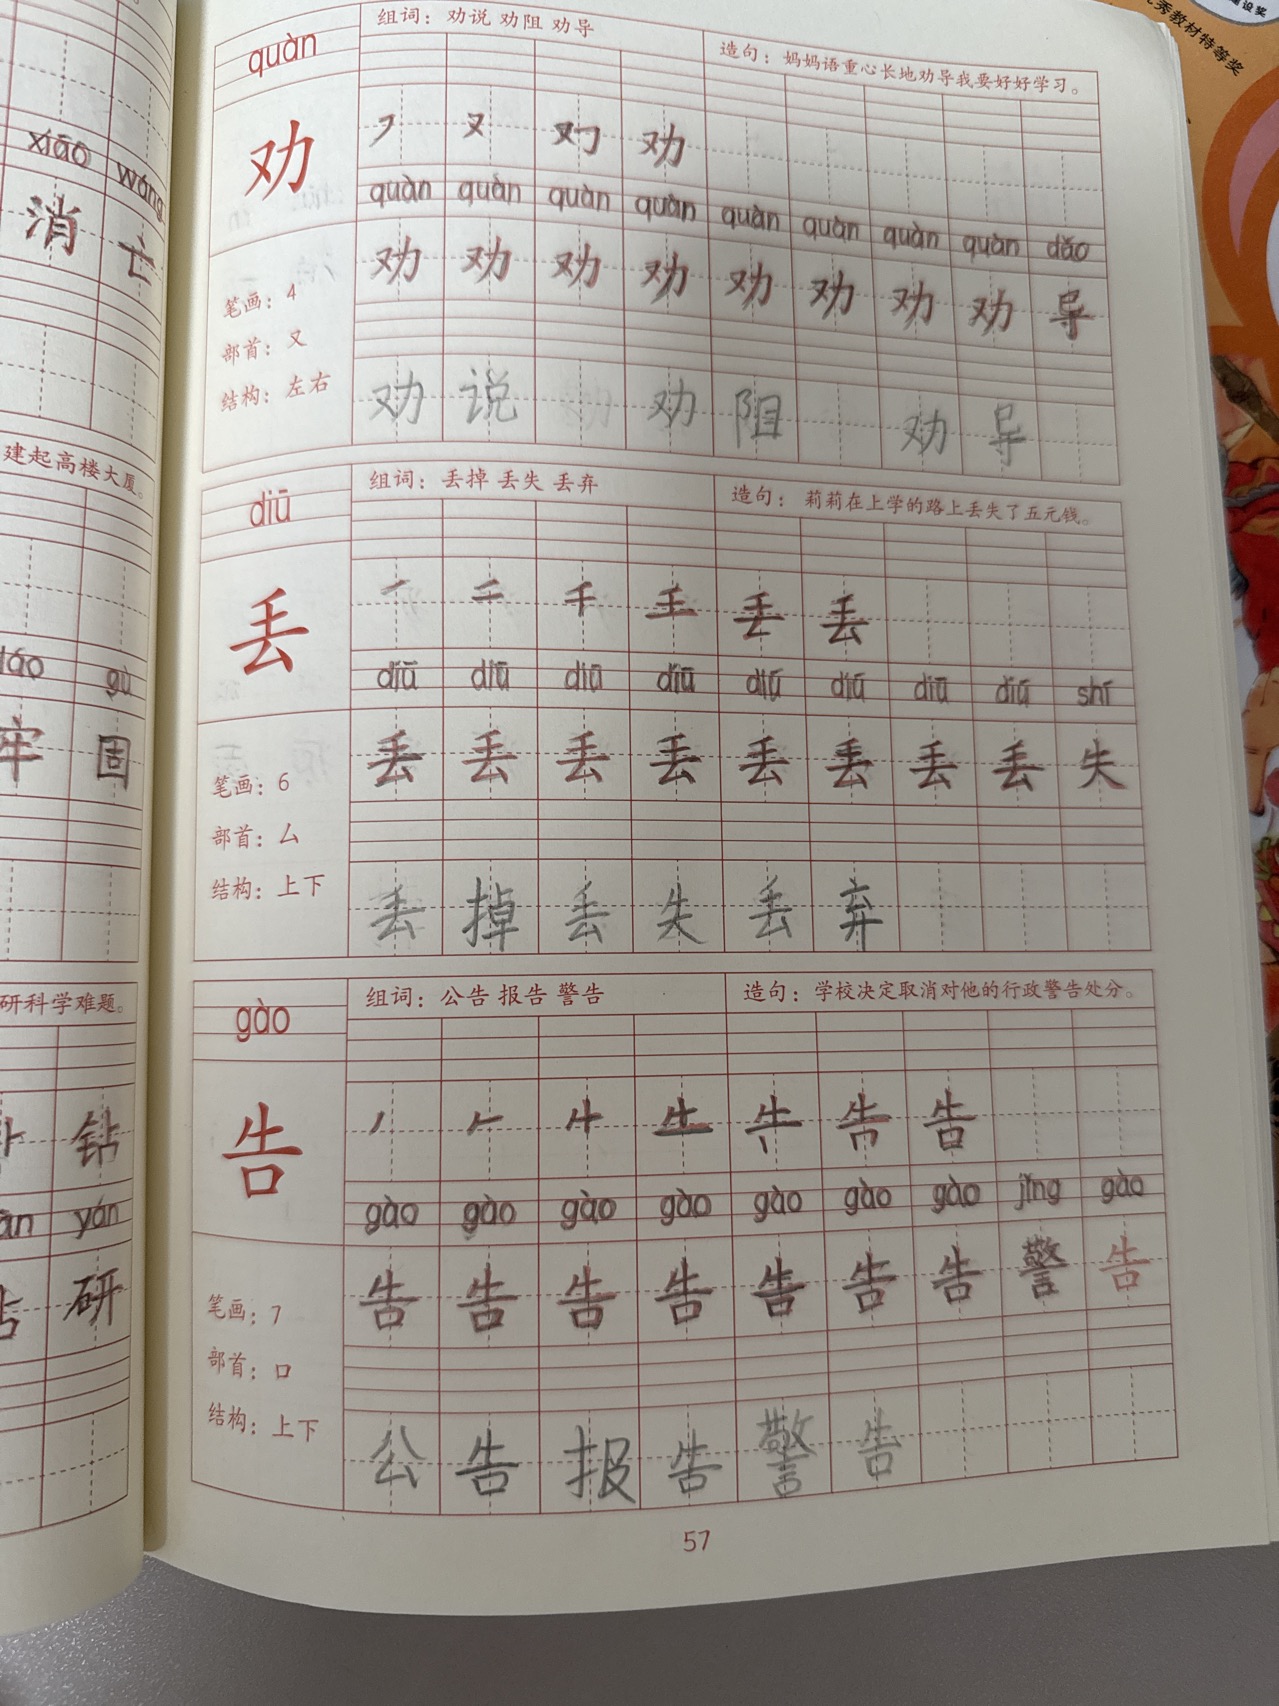 xiāo wáng
消 亡
建起高楼大厦。
láo gù
牢 固
研科学难题。
钻
yán
研
quàn
组词：劝说 劝阻 劝导
造句：妈妈语重心长地劝导我要好好学习。
劝
又 劝
quàn quàn quàn quàn quàn quàn quàn quàn dǎo
劝 劝 劝 劝 劝 劝 劝 劝 导
笔画：4
部首：又
结构：左右
劝 说 劝 阻 劝 导
diū
组词：丢掉 丢失 丢弃
造句：莉莉在上学的路上丢失了五元钱。
丢
一 二 千 壬 丢 丢
diū diū diū diū diū diū diū diū shī
丢 丢 丢 丢 丢 丢 丢 丢 失
笔画：6
部首：厶
结构：上下
丢 掉 丢 失 丢 弃
gào
组词：公告 报告 警告
造句：学校决定取消对他的行政警告处分。
告
丿 𠂉 告
gào gào gào gào gào gào gào jǐng gào
告 告 告 告 告 告 告 警 告
笔画：7
部首：口
结构：上下
公 告 报 告 警 告
57
秀教材特等奖
建设奖